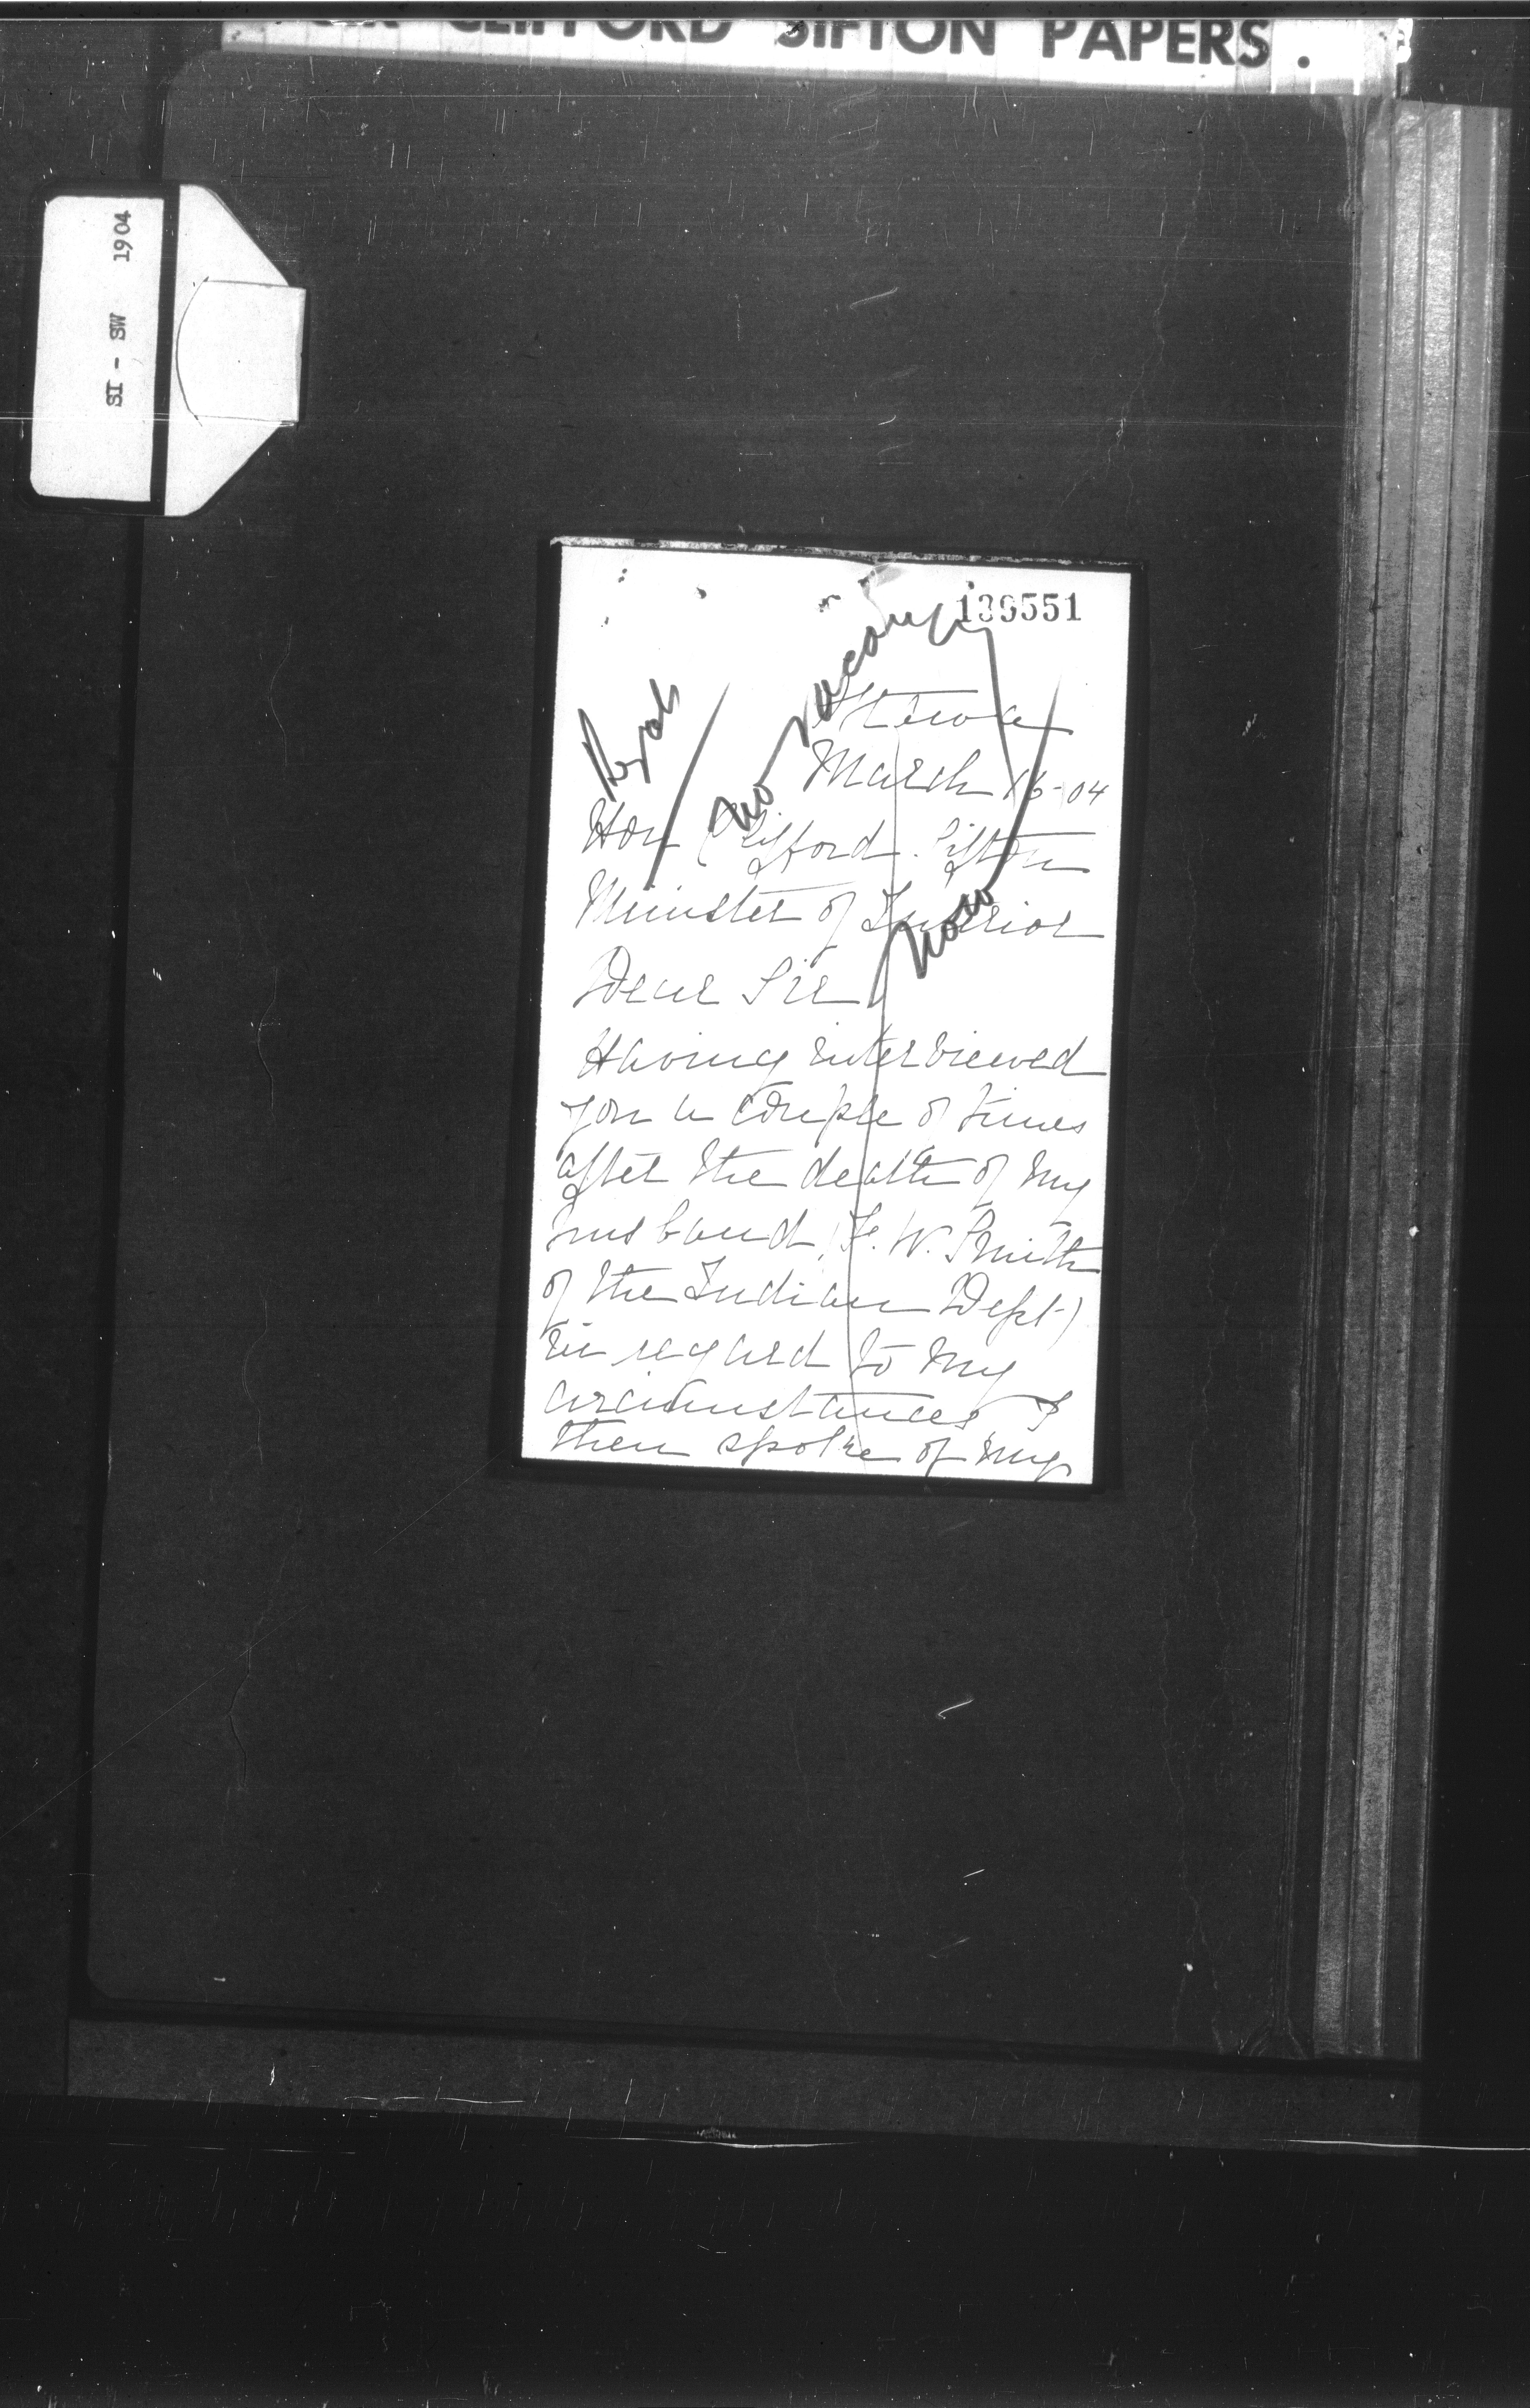 CLIFFORD SIFTON PAPERS.
SI - SW 1904
139551
no vacancy
now
Ottawa
March 16-04
Hon Clifford Sifton
Minister of Interior
Dear Sir
Having interviewed
you a couple of times
after the death of my
husband, (F. W. Smith
of the Indian Dept)
in regard to my
circumstances &
then spoke of my